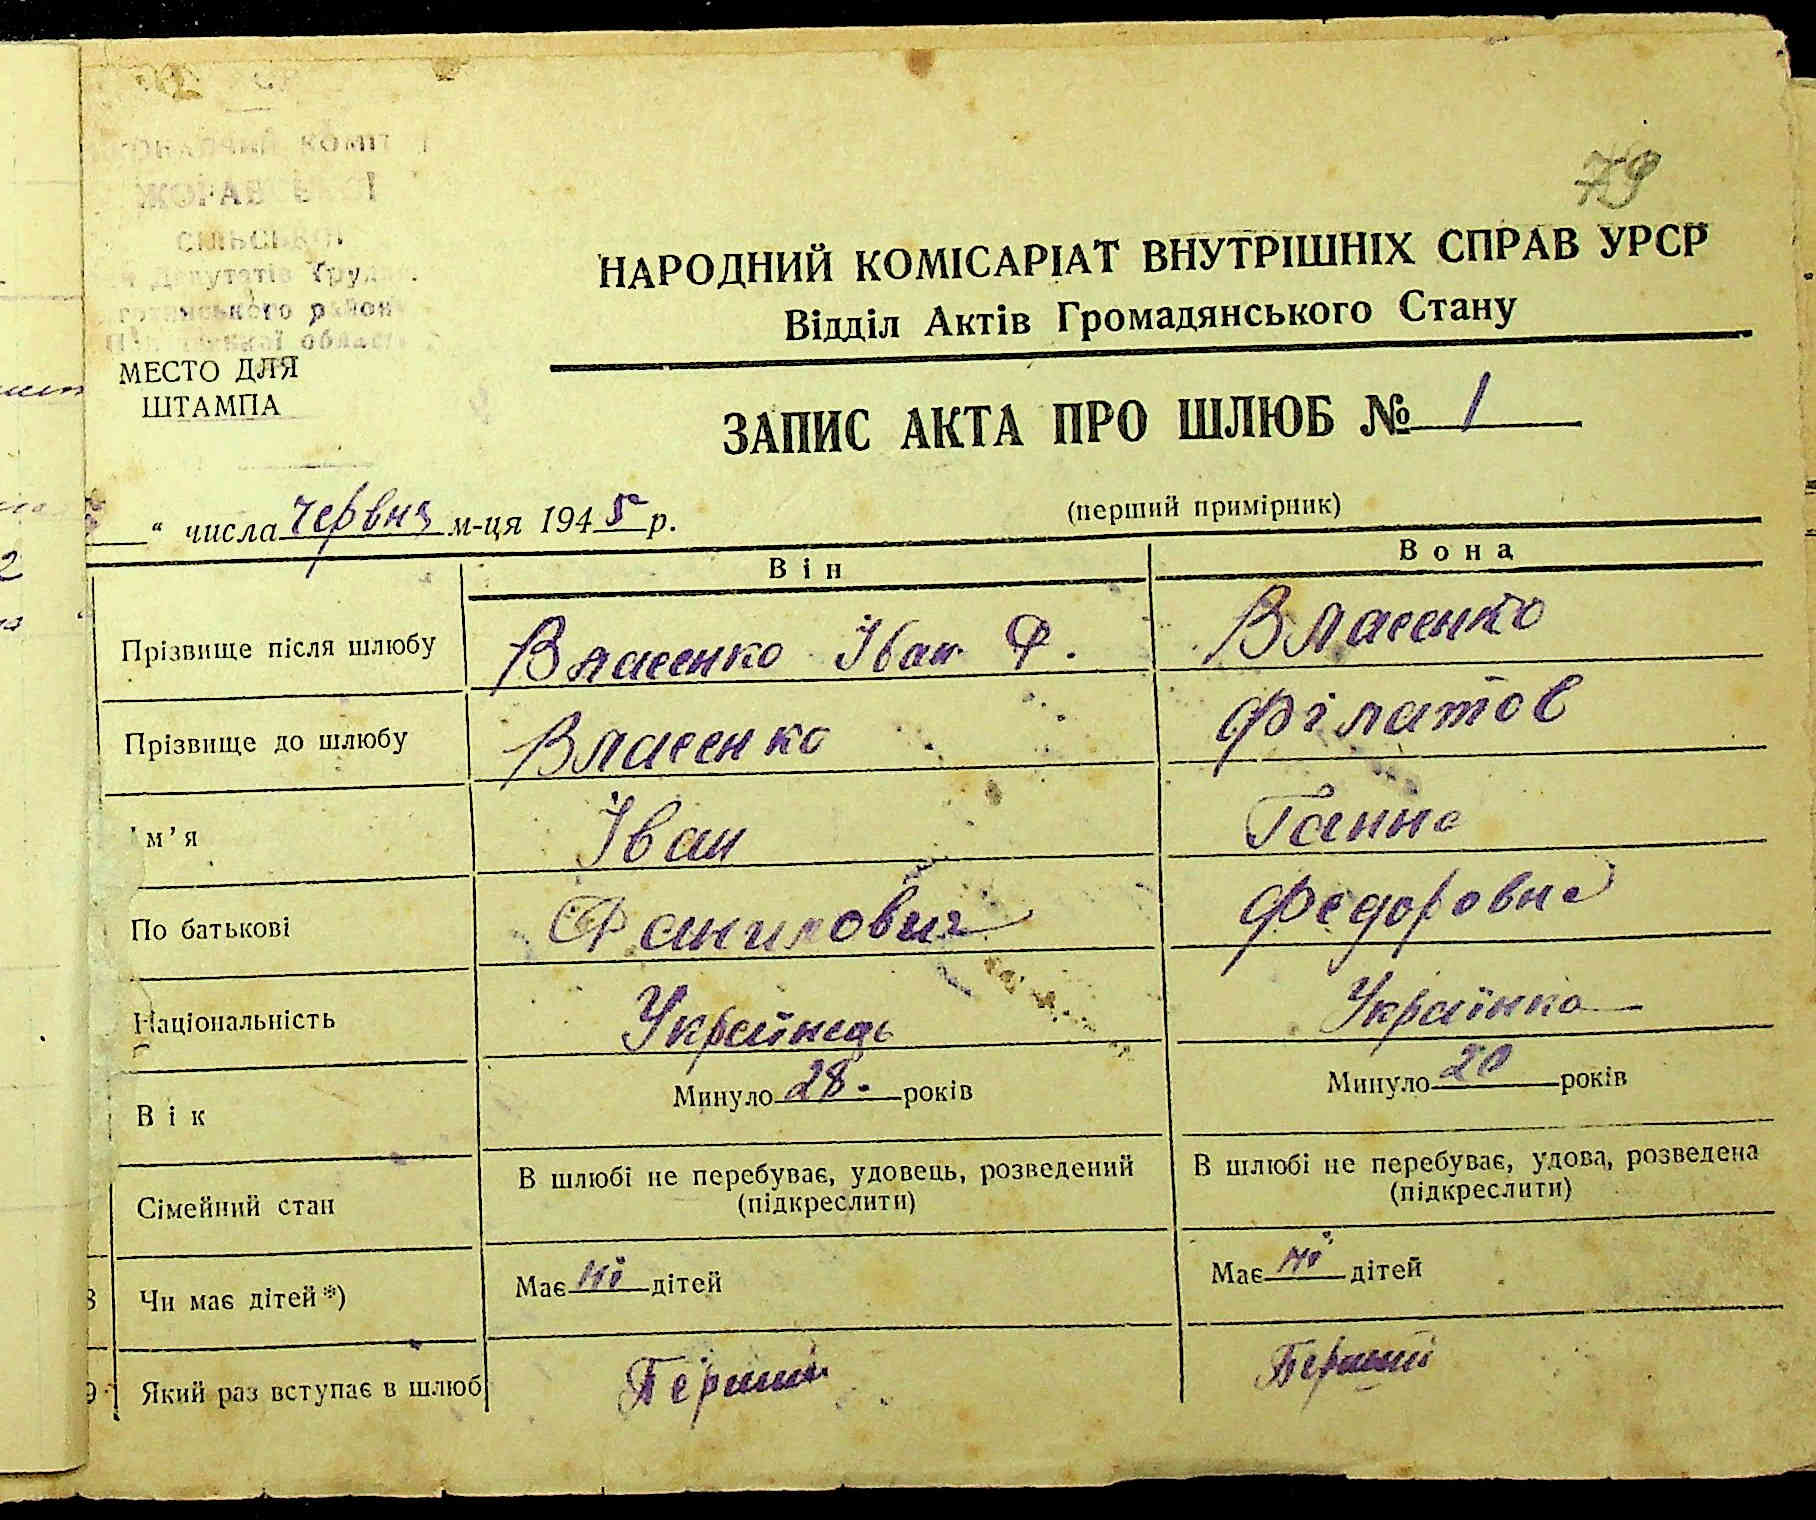 79
КОМІТ
СІЛЬСЬКОЇ
Депутатів Труд
району
області
МЕСТО ДЛЯ
ШТАМПА
НАРОДНИЙ КОМІСАРІАТ ВНУТРІШНІХ СПРАВ УРСР
Відділ Актів Громадянського Стану
ЗАПИС АКТА ПРО ШЛЮБ № 1
(перший примірник)
“ числа червня м-ця 1945 р.
Він Вона
Прізвище після шлюбу Власенко Іван Ф. Власенко
Прізвище до шлюбу Власенко Філатов
м’я Іван Ганна
По батькові Данилович Федоровна
Національність Українець Українка
Вік Минуло 28. років Минуло 20 років
Сімейний стан В шлюбі не перебуває, удовець, розведений В шлюбі не перебуває, удова, розведена
(підкреслити) (підкреслити)
8 Чи має дітей*) Має ні дітей Має ні дітей
9 Який раз вступає в шлюб Перший Перший